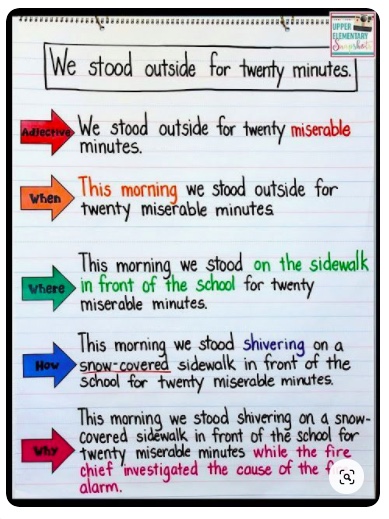 UPPER
ELEMENTARY
Snapshots
We stood outside for twenty minutes.
Adjective
We stood outside for twenty miserable
minutes.
When
This morning we stood outside for
twenty miserable minutes
Where
This morning we stood on the sidewalk
in front of the school for twenty
miserable minutes.
How
This morning we stood shivering on a
snow-covered sidewalk in front of the
school for twenty miserable minutes.
Why
This morning we stood shivering on a snow-
covered sidewalk in front of the school for
twenty miserable minutes while the fire
chief investigated the cause of the
alarm.